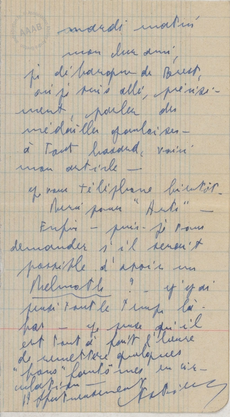 mardi matin
mon cher ami,
je débarque de Brest,
où je suis allé, précisé-
ment, parler des
médailles gauloises –
à tout hasard, voici
mon article –
je vous téléphone bientôt.
Merci pour "Arts" –
Enfin – puis-je vous
demander s'il serait
possible d'avoir un
? – j'y ai
pensé tout le temps là-
bas – je pense qu'il
est tout à fait l'heure
de remettre quelques
"bons" fantômes en cir-
culation –